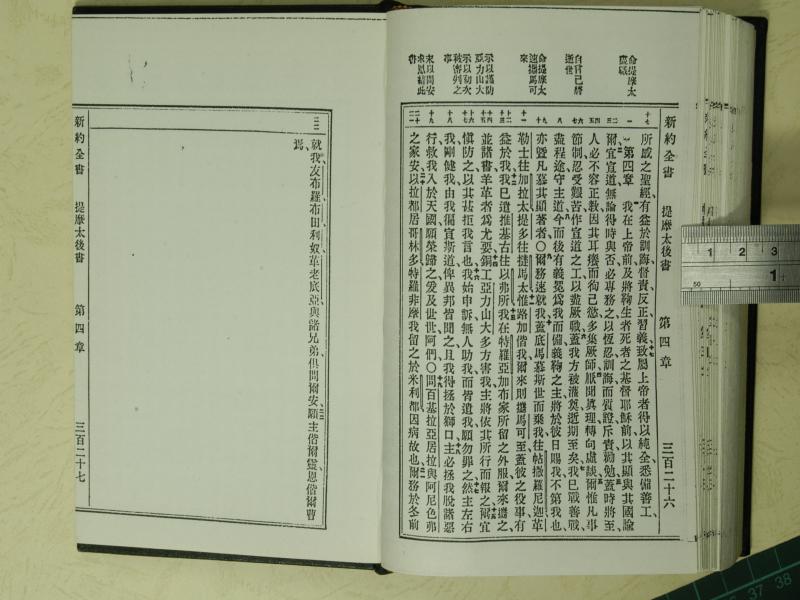 新約全書 提摩太後書 第四章 三百二十六
命提摩太
盡職
自言己將
逝世
命提摩太
速攜馬可
來
示以謹防
亞力山大
示以初次
被審列之
事
末以問安
求恩結此
書
所感之聖經有益於訓誨督責反正習義致屬上帝者得以純全悉備善工
第四章 我在上帝前及將鞫生者死者之基督耶穌前以其顯與其國諭
爾宜宣道無論得時與否必專務之以恆忍訓誨而質證斥責勸勉蓋時將至
人必不容正教因其耳癢而徇己慾多集厥師厭聞眞理轉向虛誕爾惟凡事
節制忍受艱苦作宣道之工以盡厥職蓋我方被灌奠逝期至矣我已戰善戰
盡程途守主道今而後有義冕爲我而備義鞫之主將於彼日賜我不第我也
亦曁凡慕其顯著者〇爾務速就我蓋底馬慕斯世而棄我往帖撒羅尼迦革
勒士往加拉太提多往撻馬太惟路加偕我爾來則攜馬可至蓋彼之役事有
益於我我已遣推基古往以弗所我在特羅亞加布家所留之外服爾來攜之
並諸書羊革者爲尤要銅工亞力山大多方害我主將依其所行而報之爾宜
愼防之以其甚拒我言也我始申訴無人助我而皆遺我願勿罪之然主左右
我剛健我由我徧宣斯道俾異邦皆聞之且我得拯於獅口主必拯我脫諸惡
行救我入於天國願榮歸之爰及世世阿們〇問百基拉亞居拉與阿尼色弗
之家安以拉都居哥林多特羅非摩我留之於米利都因病故也爾務於冬前
新約全書 提摩太後書 第四章 三百二十七
就我友布羅布田利奴革老底亞與諸兄弟俱問爾安願主偕爾靈恩偕爾曹
焉